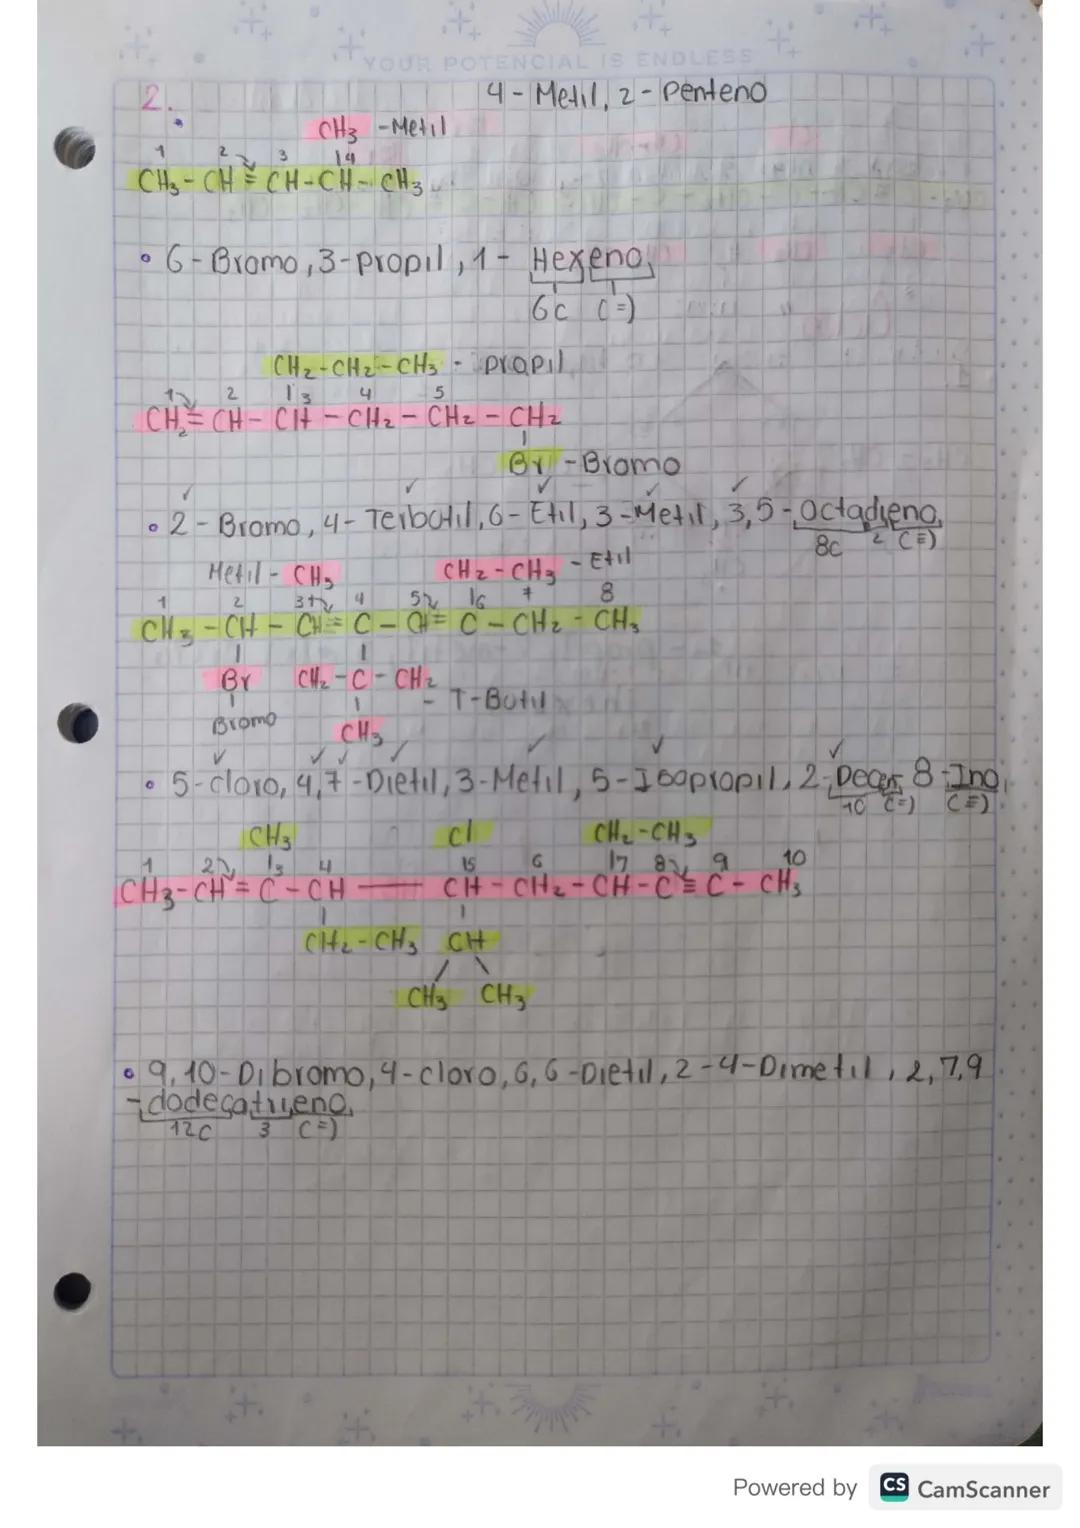 YOUR POTENCIAL IS ENDLESS
2.
4 - Metil, 2 - Penteno
CH3 - Metil
1 2 3 14
CH3 - CH = CH - CH - CH3
• 6 - Bromo, 3 - propil, 1 - Hexeno,
6c (=)
CH2 - CH2 - CH3 - propil
1 2 3 4 5
CH2 = CH - CH - CH2 - CH2 - CH2
Br - Bromo
• 2 - Bromo, 4 - Terbotil, 6 - Etil, 3 - Metil, 3,5 - Octadieno,
8c 2 (=)
Metil - CH3 CH2 - CH3 - Etil
1 2 3 4 5 6 7 8
CH3 - CH - CH = C - CH = C - CH2 - CH3
Br CH2 - C - CH2
- T - Butil
Bromo CH3
• 5 - cloro, 4,7 - Dietil, 3 - Metil, 5 - Isopropil, 2 - Decen, 8 - Ino,
10 (=) (≡)
CH3 Cl CH2 - CH3
1 2 3 4 5 6 7 8 9 10
CH3 - CH = C - CH — CH - CH2 - CH - C ≡ C - CH3
CH2 - CH3 CH
CH3 CH3
• 9,10 - Dibromo, 4 - cloro, 6,6 - Dietil, 2 - 4 - Dimetil, 2,7,9
- dodecatrieno,
12c 3 (=)
Powered by CS CamScanner